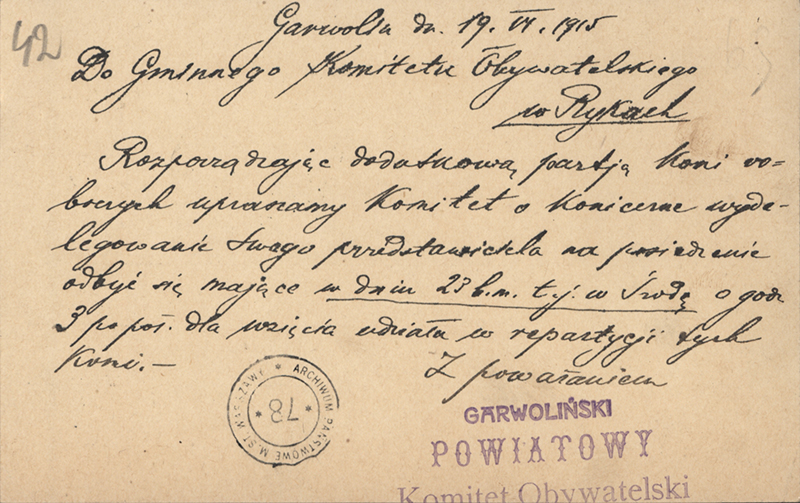 42
Garwolin dn. 19. VI. 1915
Do Gminnego Komitetu Obywatelskiego
w Rykach
Rozporządzając dodatkową partją koni ro-
boczych upraszamy Komitet o konieczne wyde-
legowanie swego przedstawiciela na posiedzenie
odbyć się mające w dniu 23 b.m. t.j. w Środę o godz
3 po poł. dla wzięcia udziału w repartycji tych
Koni. —
Z poważaniem
ARCHIWUM PAŃSTWOWE M. ST. WARSZAWY
* 78 *
GARWOLIŃSKI
POWIATOWY
Komitet Obywatelski